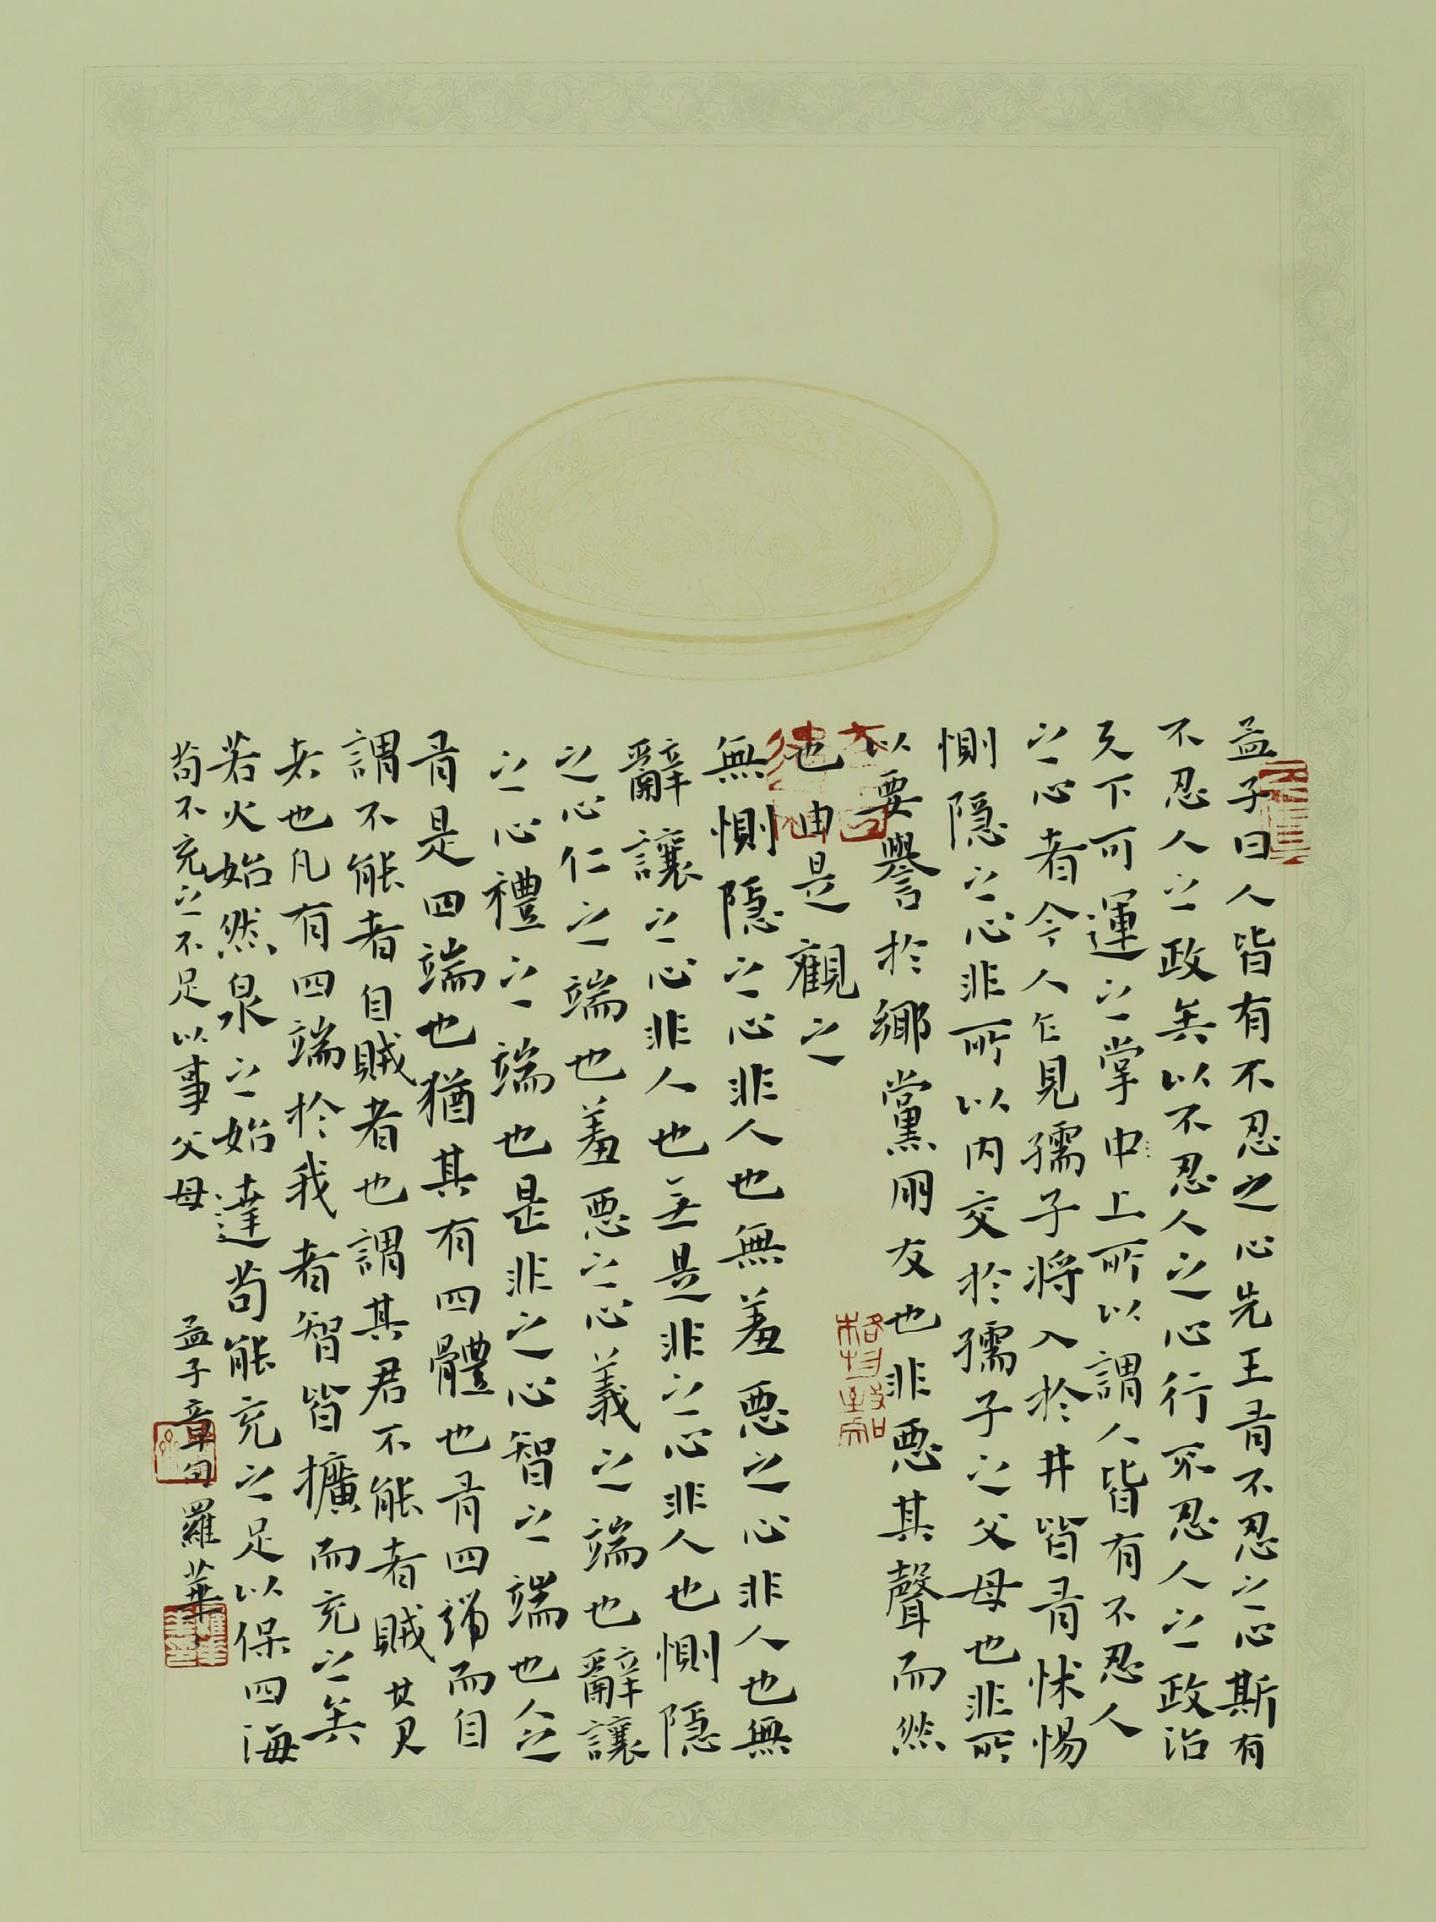 孟子曰人皆有不忍之心先王有不忍之心斯有
不忍人之政矣以不忍人之心行不忍人之政治
天下可運之掌中上所以謂人皆有不忍人
之心者今人乍見孺子將入於井皆有怵惕
惻隱之心非所以内交於孺子之父母也非所
以要譽於鄉黨朋友也非惡其聲而然
也由是觀之
無惻隱之心非人也無羞惡之心非人也無
辭讓之心非人也无是非之心非人也惻隱
之心仁之端也羞惡之心義之端也辭讓
之心禮之端也是非之心智之端也人之
有是四端也猶其有四體也有四端而自
謂不能者自賊者也謂其君不能者賊其君
者也凡有四端於我者智皆擴而充之矣
若火始然泉之始達苟能充之足以保四海
苟不充之不足以事父母
孟子章句羅華
格物致知